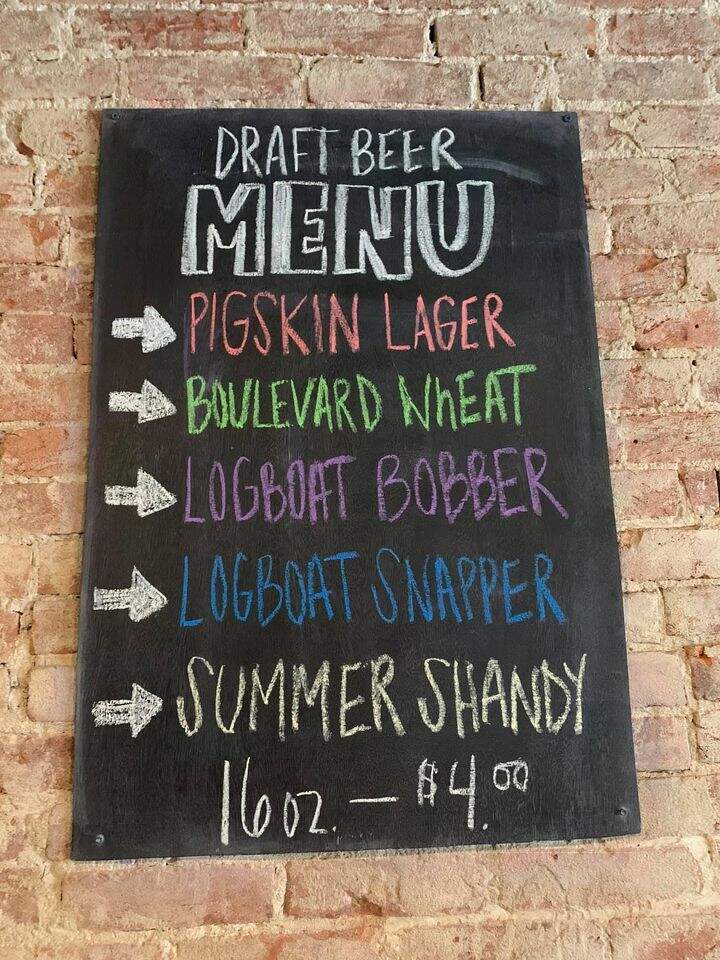 DRAFT BEER
MENU
PIGSKIN LAGER
BOULEVARD WhEAT
LOGBOAT BOBBER
LOGBOAT SNAPPER
SUMMER SHANDY
16 oz. — $4.00